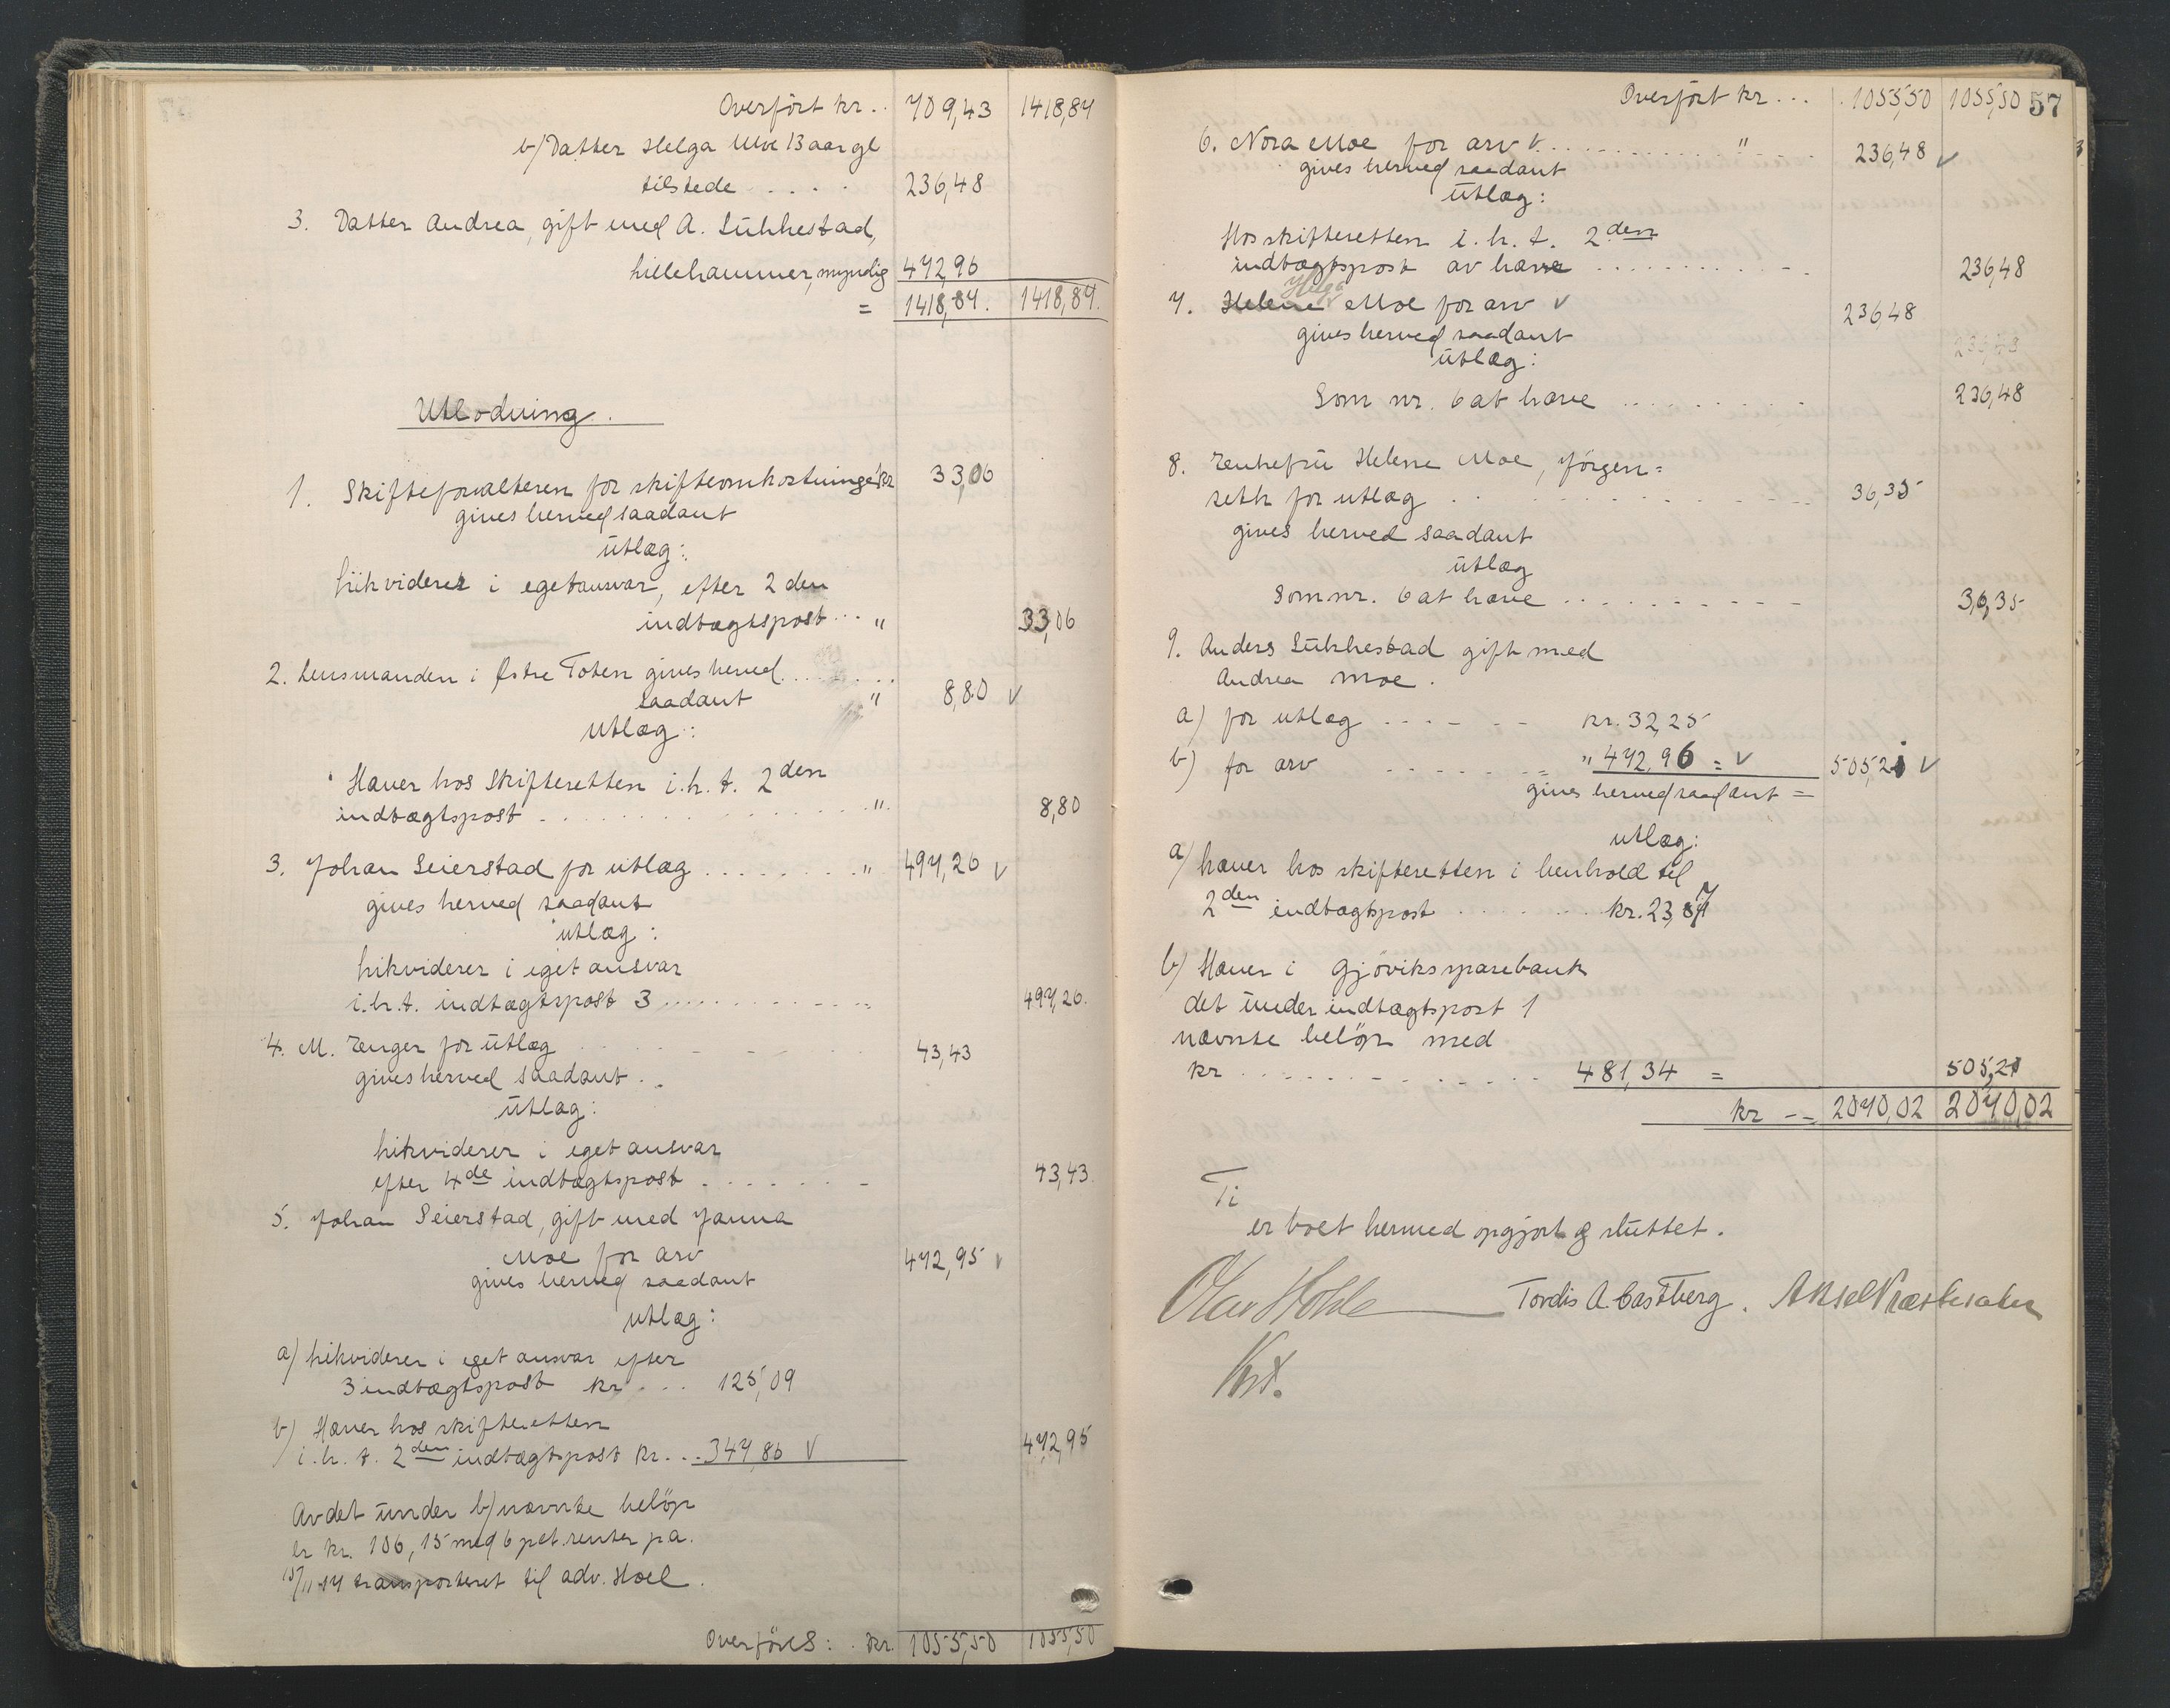 Overført kr.. 709,43 1418,84
b/ Datter Helga Moe 13 aar gl
tilstede . . . . 236,48
3. Datter Andrea, gift med A. Lukkestad,
Lillehammer, myndig 472,96
= 1418,84. 1418,84.
Utlodning.
1. Skifteforvalteren for skifteomkostninger kr 33,06
gives herved saadant
utlæg:
Likviderer i eget ansvar, efter 2den
indtægtspost... " 33,06
2. Lensmanden i Østre Toten gives herved.......
saadant " 8,80 v
utlæg:
Hæver hos Skifteretten i.h.t. 2den
indtægtspost . . . . . . . . . " 8,80
3. Johan Seierstad for utlæg ........ " 497,26 v
gives herved saadant
utlæg:
Likviderer i eget ansvar
i.h.t. indtægtspost 3 ............ 497,26.
4. M. Zenger for utlæg 43,43
gives herved saadant . .
utlæg:
Likviderer i eget ansvar
efter 4de indtægtspost . . . . . . 43,43.
5. Johan Seierstad, gift med Janna
Moe for arv 472,95 v
gives herved saadant
utlæg:
a) Likviderer i eget ansvar efter
3 indtægtspost kr . . . 125,09
b) Hæver hos skifteretten
i.h.t. 2den indtægtspost kr... 347,86 v 472,95
Av det under b/ nævnte beløp
er kr. 106,15 med 6 pct. renter p a.
15/11-14 transporteret til adv. Hoel.
Overføres: . kr. 1055,50 1055,50
Overført kr ... 1055,50 1055,50 57
6. Nora Moe for arv v............." 236,48 v
gives herved saadant
utlæg:
Hos skifteretten i.h.t. 2den
indtægtspost av hæve ............ 236,48
Helga
7. Helene Moe for arv v 236,48
gives herved saadant
utlæg:
236,48
Som nr. 6 at hæve .......... 236,48
8. Enkefru Helene Moe, Jørgen=
seth for utlæg . . . . . . . . . 36,35
gives herved saadant
utlæg
Som nr. 6 at hæve . . . . . . . . . 36,35
9. Anders Lukkestad gift med
Andrea Moe.
a) for utlæg . . . . . . kr. 32,25
b) for arv . . . . . . . " 472,96 = v 505,21 v
gives herved saadant =
utlæg:
a) hæver hos skifteretten i henhold til
2den indtægtspost . . . . . . . kr. 23,87
b) Hæver i Gjøviks sparebank
det under indtægtspost 1
nævnte beløp med
kr . . . . . . . . . . . 481,34 = 505,21
kr -- 2040,02 2040,02
Ti
er boet hermed opgjort & sluttet.
Olav Hohle Tordis A Castberg. Aksel Præstesater
Kst.